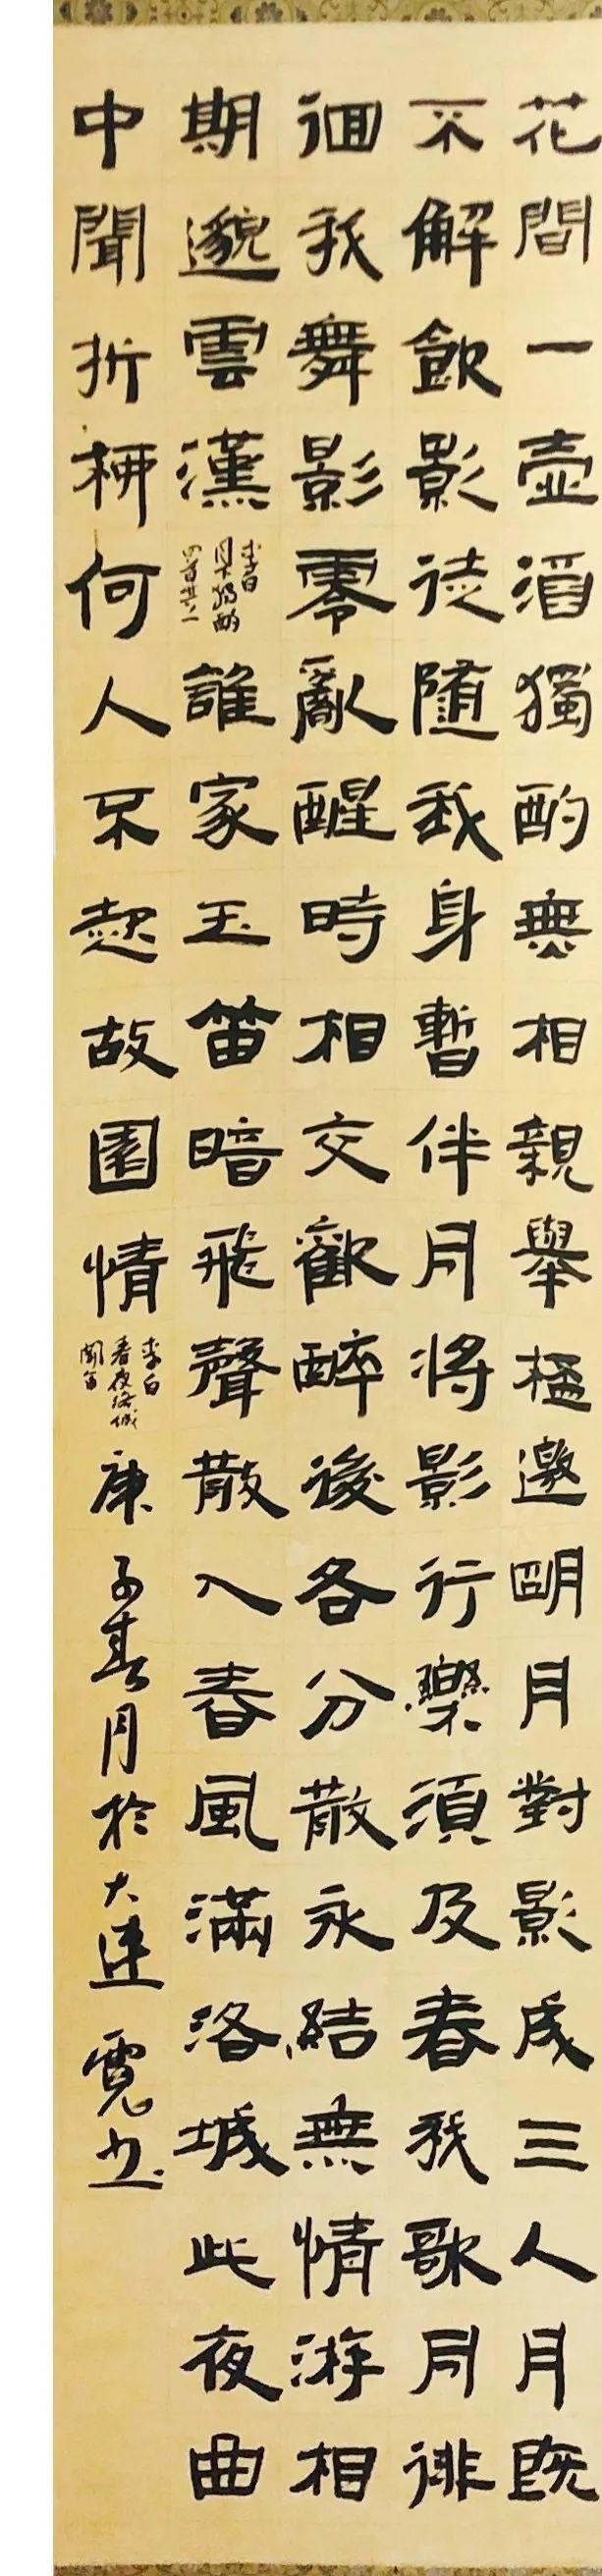 花間一壺酒獨酌無相親舉桮邀朙月對影成三人月既
不解飲影徒隨我身暫伴月將影行樂須及春我歌月徘
徊我舞影零亂醒時相交歡醉後各分散永結無情游相
期邈雲漢
李白
月下獨酌
四首其一
誰家玉笛暗飛聲散入春風滿洛城此夜曲
中聞折柳何人不起故園情
李白
春夜洛城
聞笛
庚子春月於大連霓書